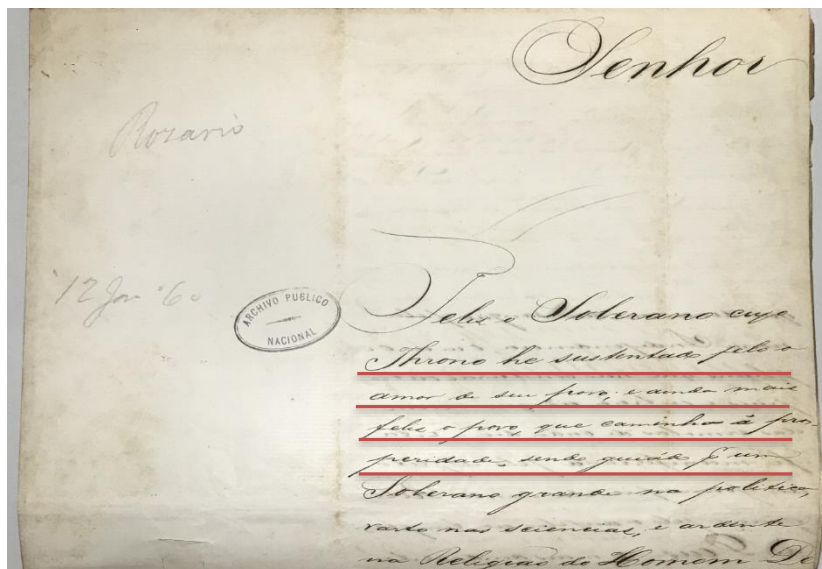 Senhor
Rozario
12 Jan 60
ARCHIVO PUBLICO
NACIONAL
Feliz o Soberano cujo
Throno he sustentado pelo
amor de seu povo, e ainda mais
feliz o povo, que caminha á pros-
peridade, sendo guiado por um
Soberano grande na politica,
vasto nas sciencias, e ardente
na Religião do Homem De